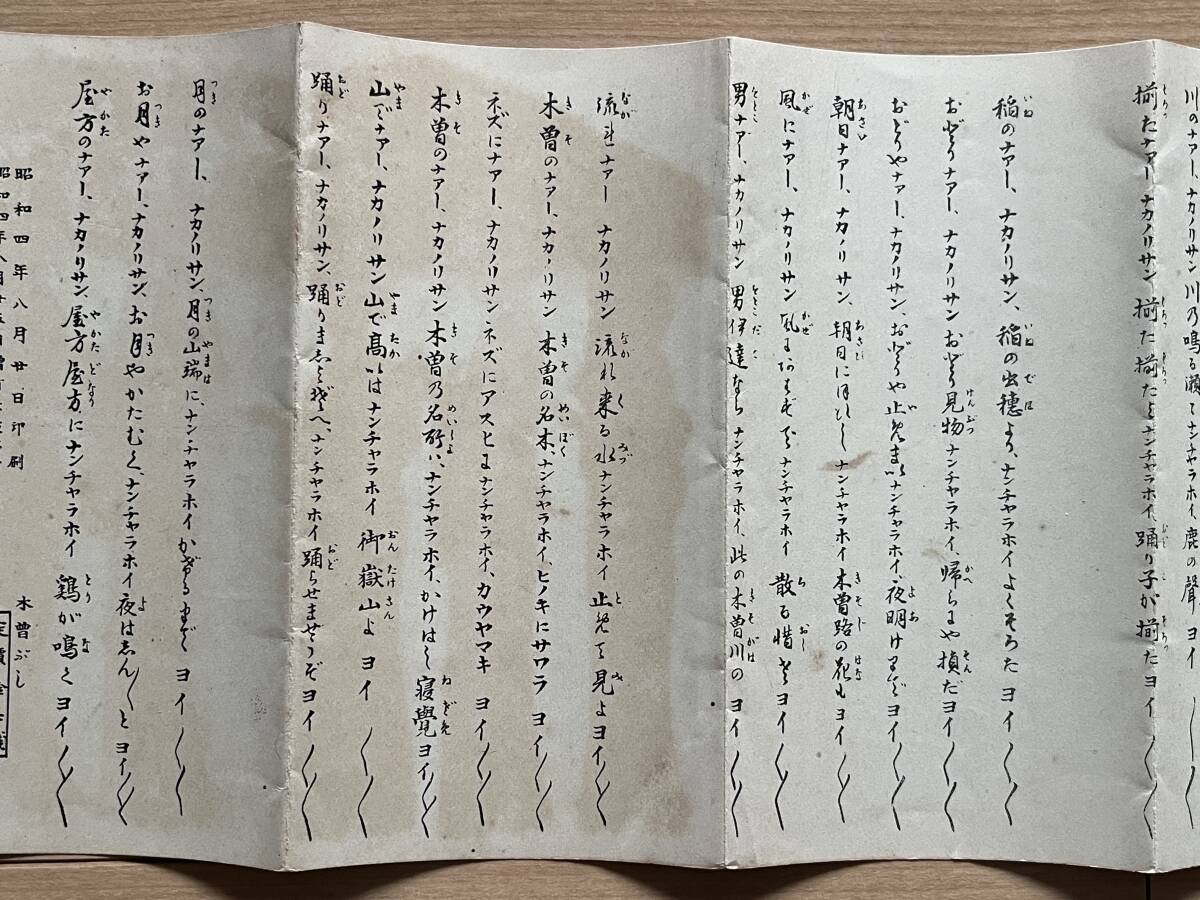 川のナアー、ナカノリサン川乃鳴る瀬とナンチャラホイ、鹿の聲 ヨイ〱
揃たナアー ナカノリサン 揃た揃たとナンチャラホイ、踊り子が揃たヨイ〱
稲のナアー、ナカノリサン、稲の出穂より、ナンチャラホイよくそろたヨイ〱
おどりナアー、ナカノリサン おどり見物ナンチャラホイ、帰らにや損だヨイ〱
おどりやナアー、ナカノリサン、おどりや止めまいナンチャラホイ、夜明けまでヨイ〱
朝日ナアー、ナカノリサン、朝日にほひしナンチャラホイ木曽路の花もヨイ〱
風にナアー、ナカノリサン、風にあはせてナンチャラホイ 散るも惜そヨイ〱
男ナアー、ナカノリサン 男伊達なら ナンチャラホイ、此の木曽川の ヨイ〱
流れナアー ナカノリサン 流れ来る水ナンチャラホイ 止めて見よヨイ〱
木曽のナアー、ナカノリサン 木曽の名木、ナンチャラホイ、ヒノキにサワラ ヨイ〱
ネズにナアー、ナカノリサンネズにアスヒにナンチャラホイ、カウヤマキ ヨイ〱
木曽のナアー、ナカノリサン木曽乃名所は、ナンチャラホイ、かけはし寝覺ヨイ〱
山でナアー、ナカノリサン山で髙いはナンチャラホイ 御嶽山よ ヨイ〱
踊りナアー、ナカノリサン、踊りましよぞへ、ナンチャラホイ踊らせませうぞヨイ〱
月のナアー、ナカノリサン、月の山端に、ナンチャラホイかゝるまで ヨイ〱
お月やナアー、ナカノリサン、お月やかたむく、ナンチャラホイ夜はしん〱とヨイ〱
屋方のナアー、ナカノリサン、屋方屋方にナンチャラホイ 鶏が鳴くヨイ〱
昭和四年八月廿 日印刷
木曽ぶし